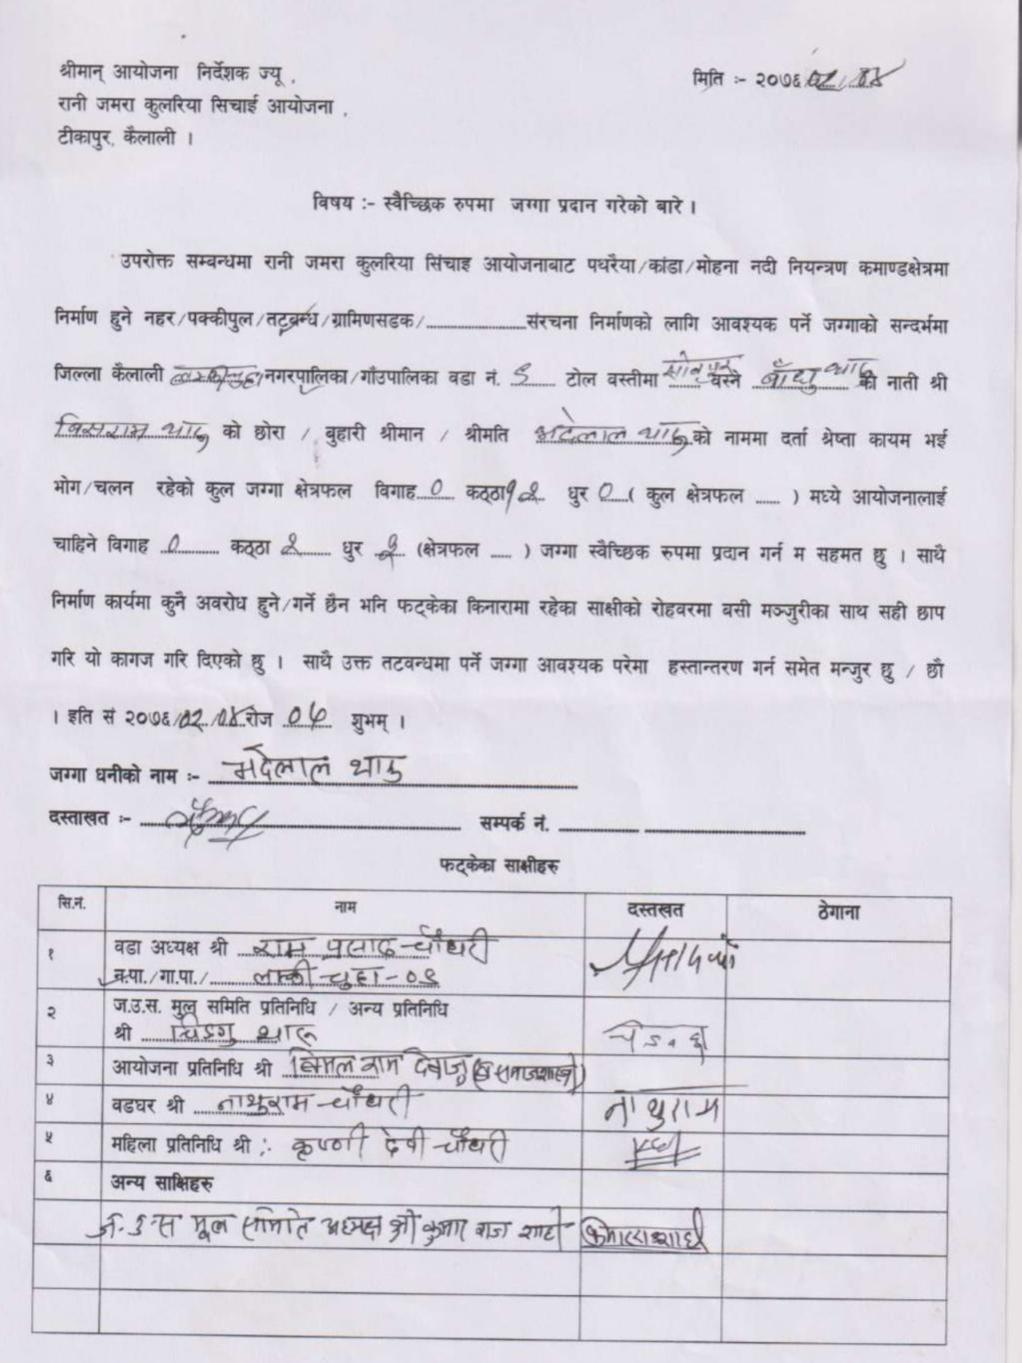 श्रीमान् आयोजना निर्देशक ज्यू ,
मिति :- २०७६/०२/०४
रानी जमरा कुलरिया सिचाई आयोजना ,
टीकापुर, कैलाली ।
विषय :- स्वैच्छिक रुपमा जग्गा प्रदान गरेको बारे ।
उपरोक्त सम्बन्धमा रानी जमरा कुलरिया सिंचाइ आयोजनाबाट पथरैया/कांडा/मोहना नदी नियन्त्रण कमाण्डक्षेत्रमा
निर्माण हुने नहर/पक्कीपुल/तटबन्ध/ग्रामिणसडक/....................संरचना निर्माणको लागि आवश्यक पर्ने जग्गाको सन्दर्भमा
जिल्ला कैलाली नगरपालिका/गाँउपालिका वडा नं. टोल वस्तीमा बस्ने थारु को नाती श्री
बिसराम थारु को छोरा / बुहारी श्रीमान / श्रीमति थारु को नाममा दर्ता श्रेष्ता कायम भई
भोग/चलन रहेको कुल जग्गा क्षेत्रफल विगाह 0 कठ्ठा १२ धुर 0 ( कुल क्षेत्रफल ...... ) मध्ये आयोजनालाई
चाहिने विगाह 0 कठ्ठा २ धुर २ (क्षेत्रफल ..... ) जग्गा स्वैच्छिक रुपमा प्रदान गर्न म सहमत छु । साथै
निर्माण कार्यमा कुनै अवरोध हुने/गर्ने छैन भनि फट्केका किनारामा रहेका साक्षीको रोहवरमा बसी मञ्जुरीका साथ सही छाप
गरि यो कागज गरि दिएको छु । साथै उक्त तटवन्धमा पर्ने जग्गा आवश्यक परेमा हस्तान्तरण गर्न समेत मन्जुर छु / छौ
। इति सं २०७६/०२/०४ रोज शुभम् ।
जग्गा धनीको नाम :- भदेलाल थारु
दस्ताखत :- सम्पर्क नं.
फट्केका साक्षीहरु
सि.नं. नाम दस्तखत ठेगाना
१ वडा अध्यक्ष श्री राम प्रसाद चौधरी
न.पा./गा.पा./ लम्की चुहा-०९
२ ज.उ.स. मुल समिति प्रतिनिधि / अन्य प्रतिनिधि
श्री थारु
३ आयोजना प्रतिनिधि श्री बिमल राम
४ वडघर श्री नाथुराम चौधरी नाथुराम
५ महिला प्रतिनिधि श्री :- कृष्णी देवी चौधरी
६ अन्य साक्षिहरु
ज.उ.स मूल समिति अध्यक्ष श्री कुमार राज शाही